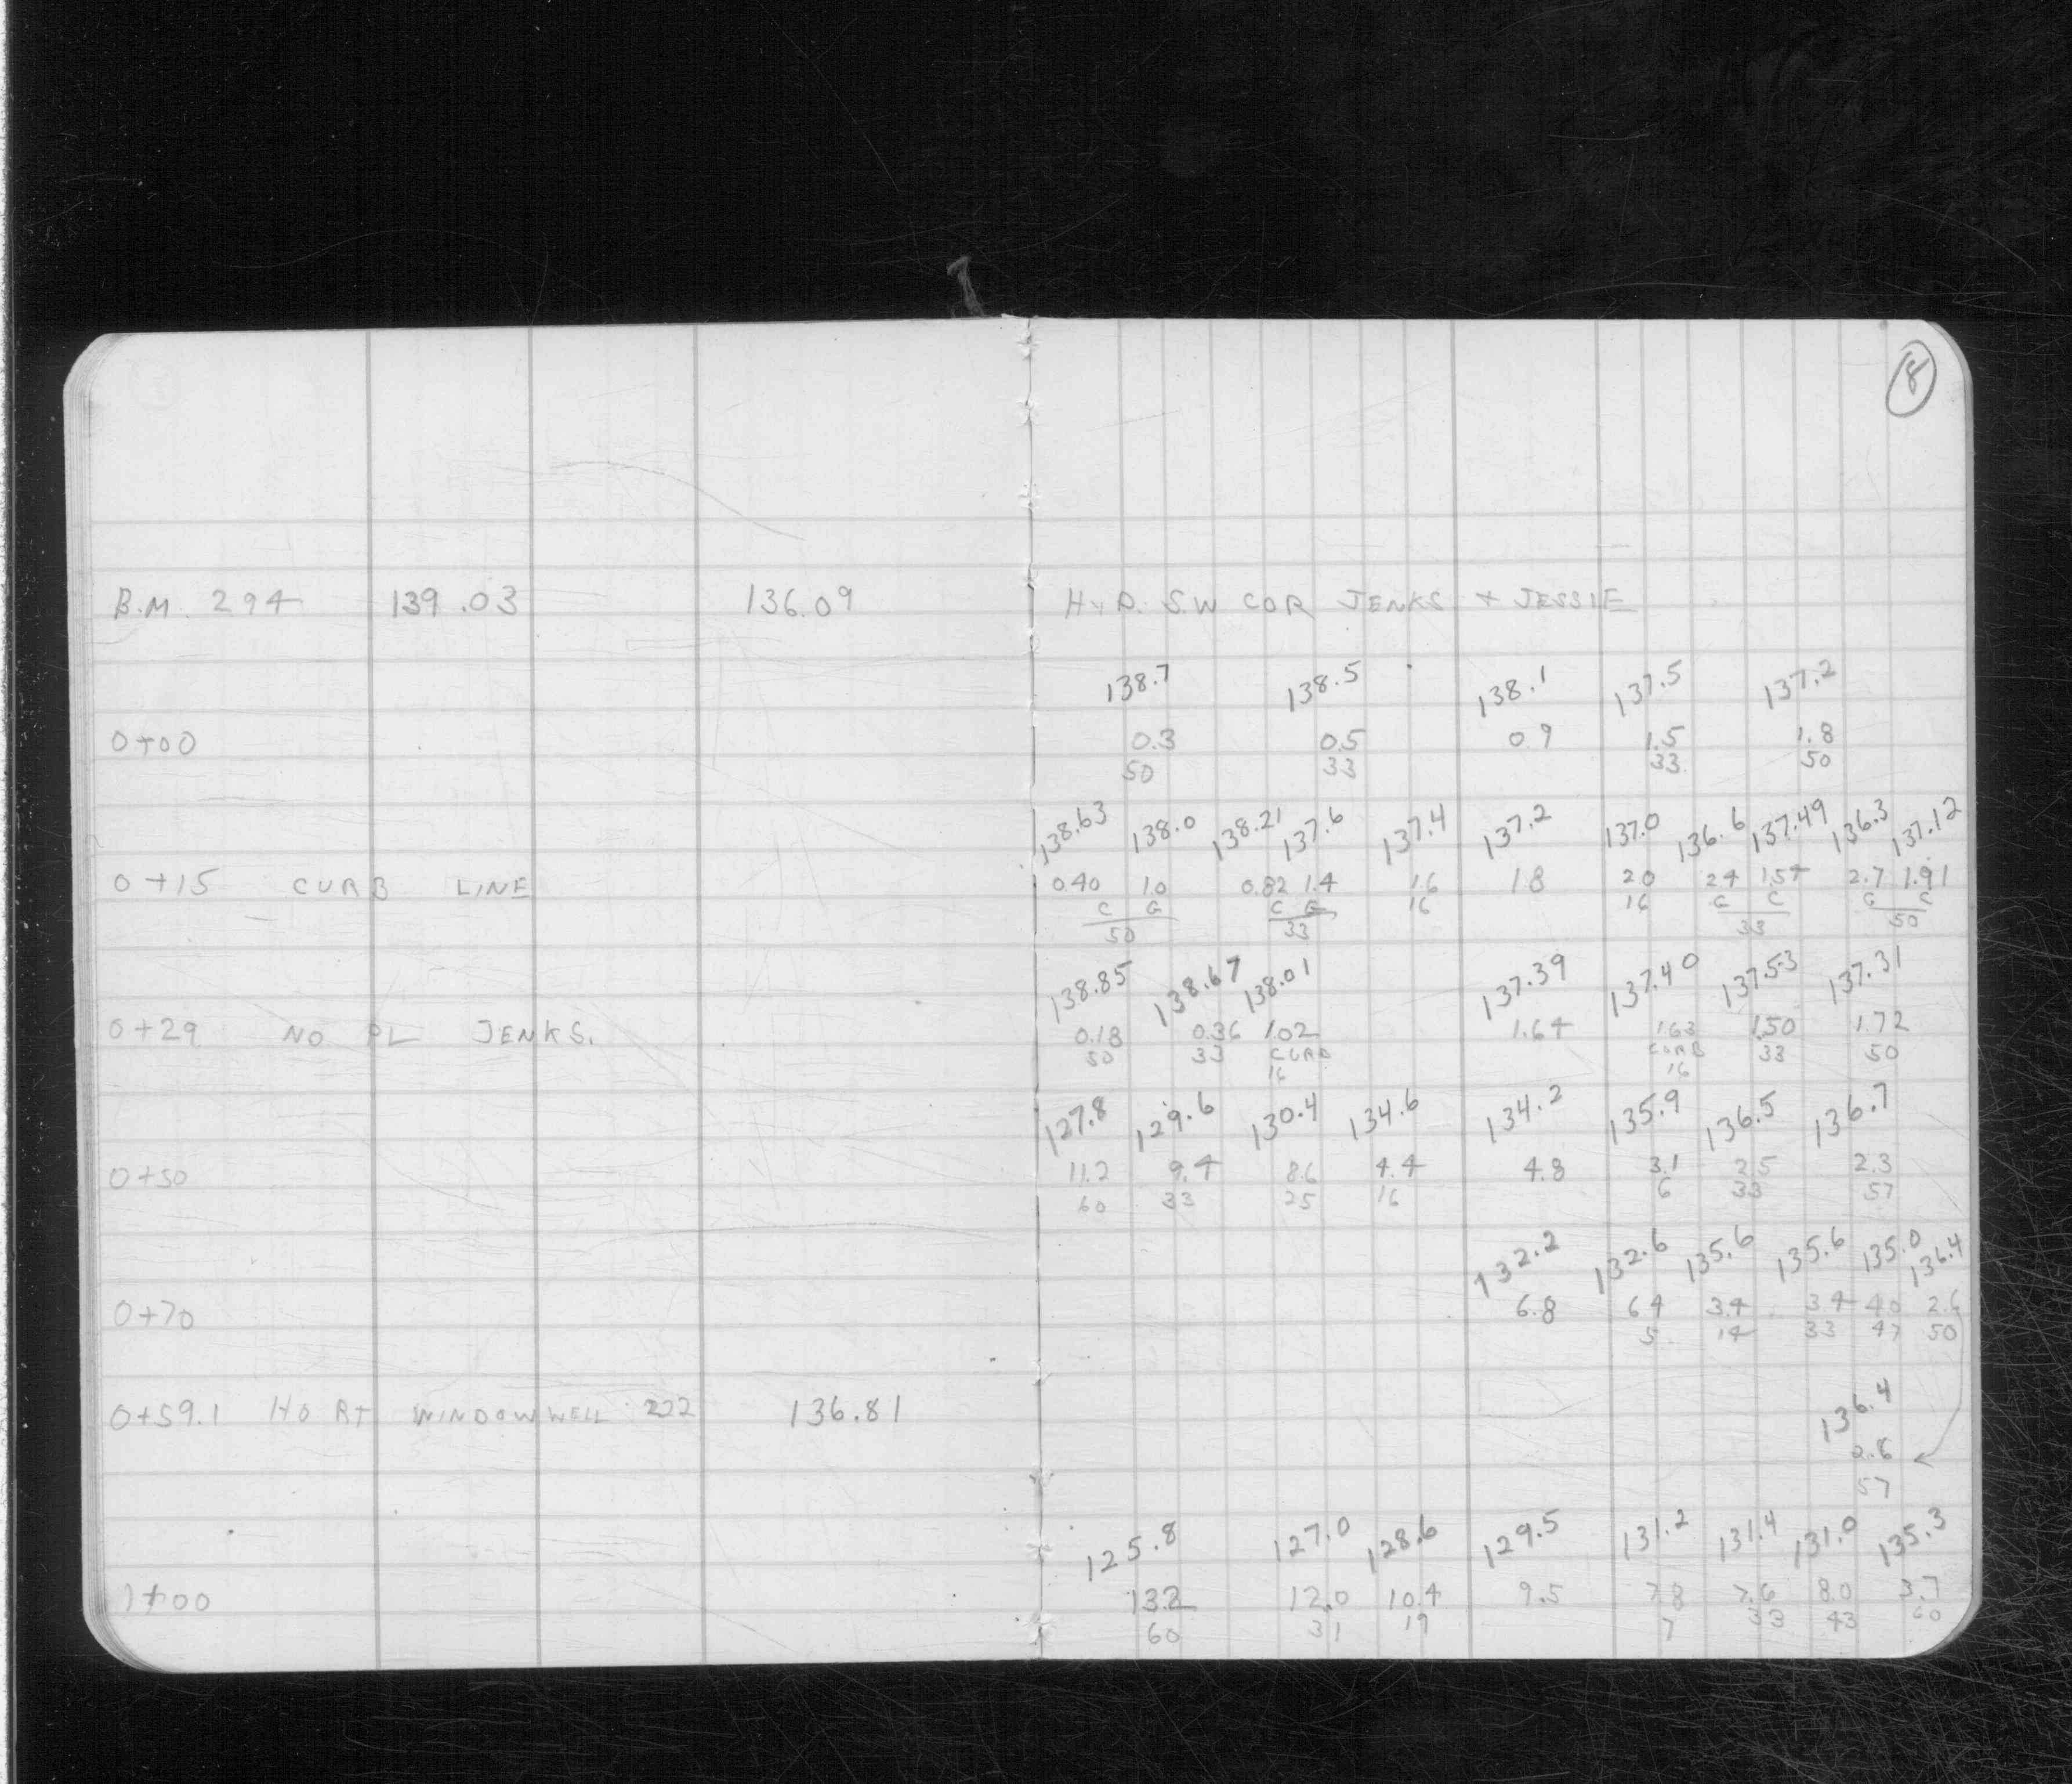 8
B.M. 294 139.03 136.09 HYD. S.W COR JENKS + JESSIE
138.7 138.5 138.1 137.5 137.2
0+00 0.3 0.5 0.9 1.5 1.8
50 33 33 50
138.63 138.0 138.21 137.6 137.4 137.2 137.0 136.6 137.49 136.3 137.12
0+15 CURB LINE 0.40 1.0 0.82 1.4 1.6 1.8 2.0 2.4 1.54 2.7 1.91
C G C G 16 16 G C G C
50 33 33 50
138.85 138.67 138.01 137.39 137.40 137.53 137.31
0+29 NO PL JENKS. 0.18 0.36 1.02 1.64 1.63 1.50 1.72
50 33 CURB CURB 33 50
16 16
127.8 129.6 130.4 134.6 134.2 135.9 136.5 136.7
0+50 11.2 9.4 8.6 4.4 4.8 3.1 2.5 2.3
60 33 25 16 6 33 57
132.2 132.6 135.6 135.6 135.0 136.4
0+70 6.8 6.4 3.4 3.4 4.0 2.6
5 14 33 47 50
0+59.1 HO RT WINDOW WELL 222 136.81 136.4
2.6
57
125.8 127.0 128.6 129.5 131.2 131.4 131.0 135.3
1+00 13.2 12.0 10.4 9.5 7.8 7.6 8.0 3.7
60 31 19 7 33 43 60